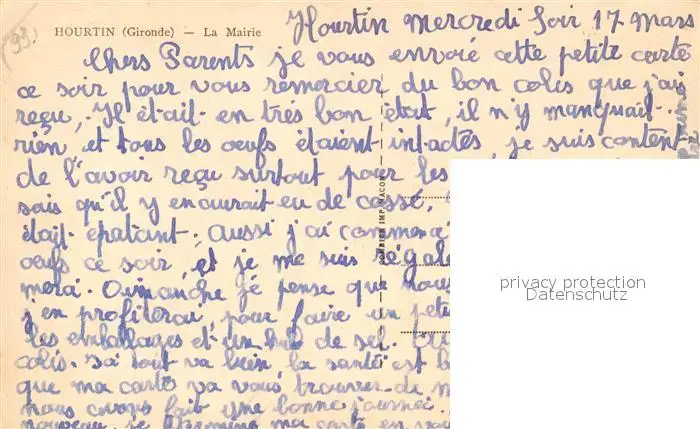 (33)
HOURTIN (Gironde) — La Mairie
Hourtin Mercredi Soir 17 Mars
Chers Parents je vous envoie cette petite carte
ce soir pour vous remercier du bon colis que j'ai
reçu, Il était en très bon état, il n'y manquait
rien et tous les oeufs étaient intactes, je suis content
de l'avoir reçu surtout pour les
sais qu'il y en aurait eu de cassé,
était épatant, aussi j'ai commencé
oeufs ce soir, et je me suis régalé
merci. Dimanche je pense que nous
j'en profiterai pour faire un peti
les emballages et un de sel.
colis. Ici tout va bien, la santé est b
que ma carte va vous trouver de m
nous avons fait une bonne journée.
nouveau, je termine ma carte en vous
COMBIER IMP. MACON
privacy protection
Datenschutz